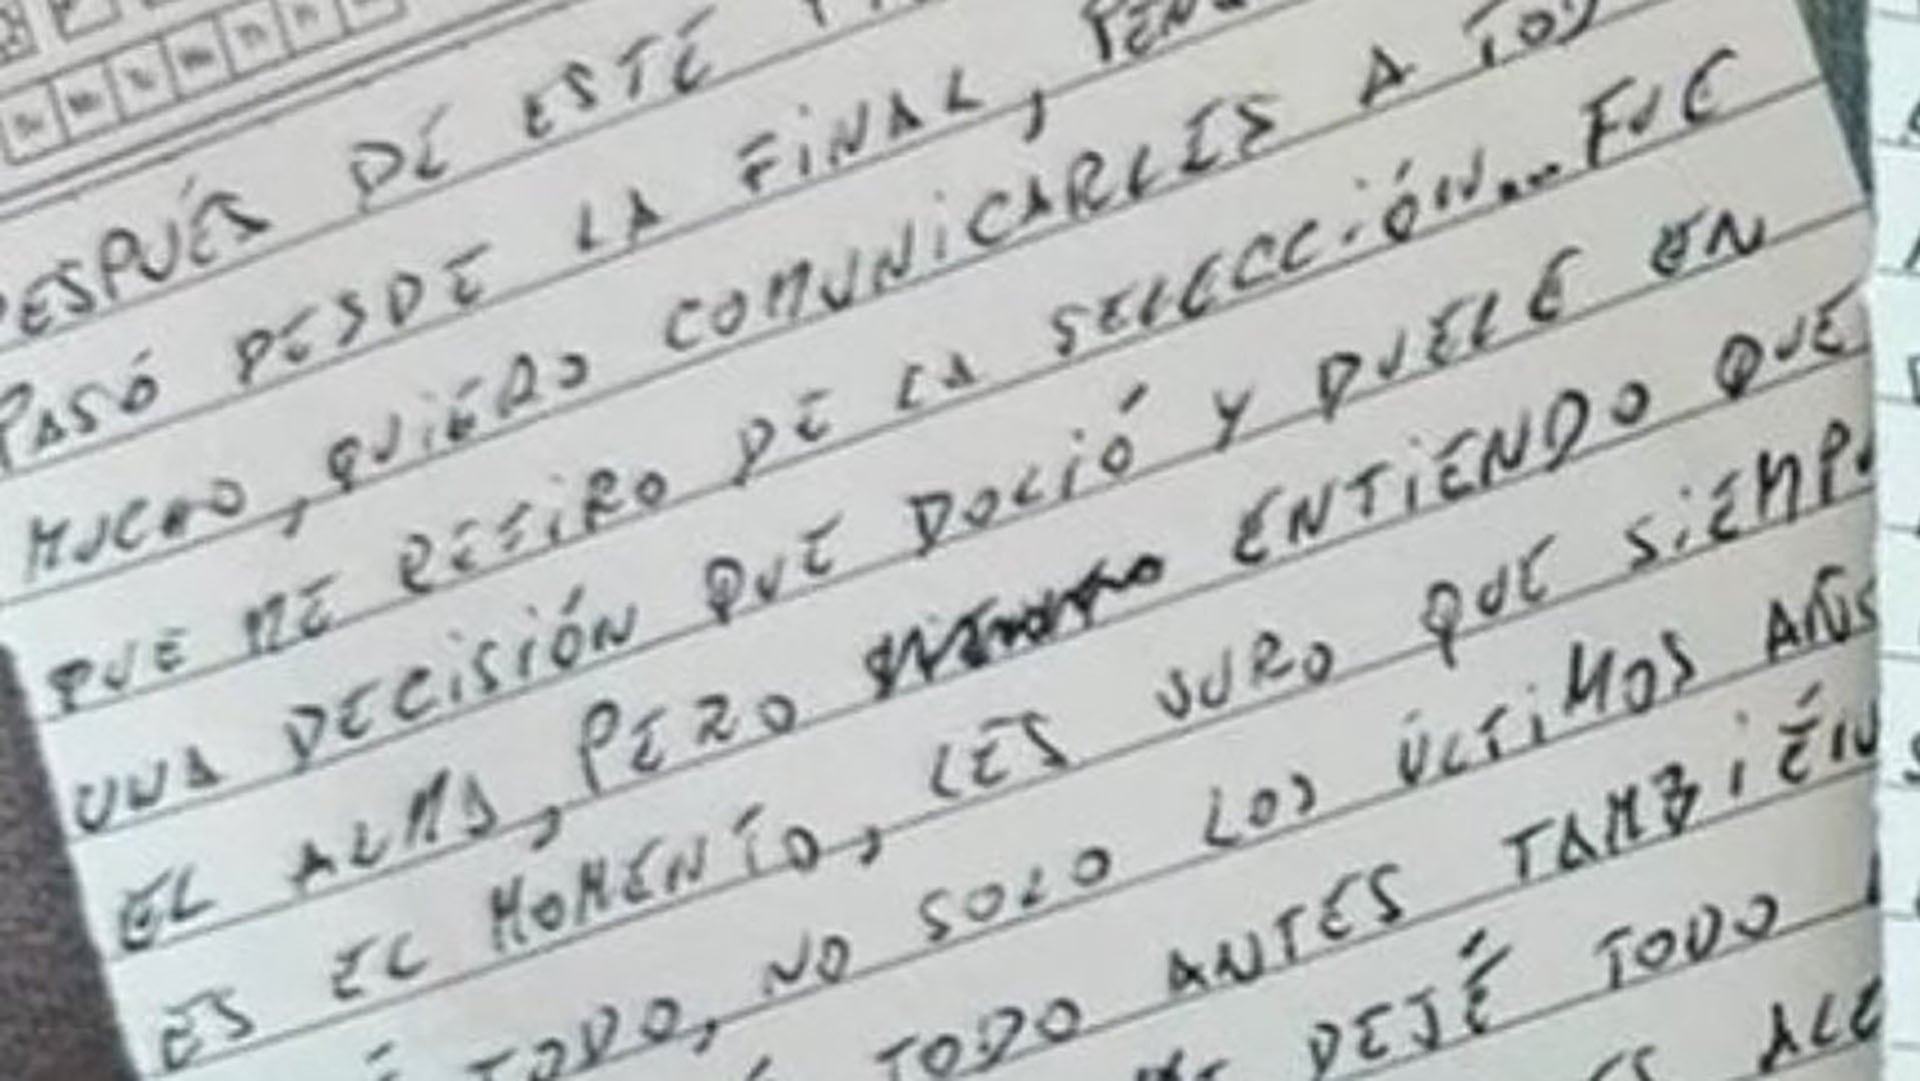 DESPUÉS DE ESTE
PASÓ DESDE LA FINAL,
MUCHO, QUIERO COMUNICARLES A
QUE ME RETIRO DE LA SELECCIÓN... FUE
UNA DECISIÓN QUE DOLIÓ Y DUELE EN
EL ALMA, PERO ENTIENDO QUE
ES EL MOMENTO, LES JURO QUE
TODO, NO SOLO LOS ÚLTIMOS
TODO ANTES TAMBIÉN
DEJÉ TODO